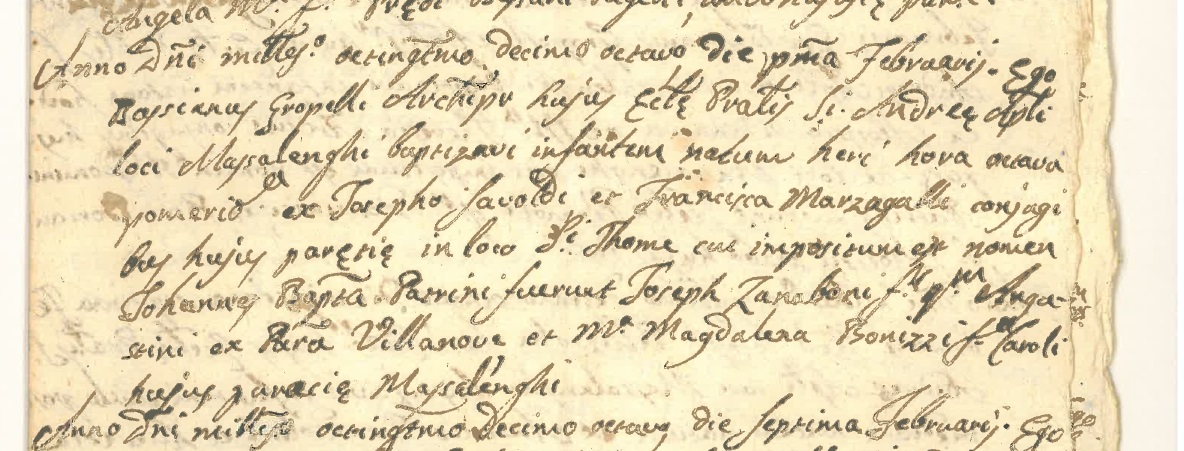 Angela M.ª f.
Anno Dñi milles.º octingt̃mo decimo octavo die pm̃a Februarij. Ego
Bassianus Gropelli Archipr hujus Ecl̃ę Prał̃is S.i Andreę Apl̃i
loci Massalenghi baptizavi infantem natum heri hora octava
pomerid.a ex Josepho Savoldi et Francisca Marzagalli conjugi
bus hujus paręcię in loco S.i Thome cui impositum est nomen
Johannes Bapt̃a Patrini fuerunt Joseph Zanaboni f.s q.m Anga-
stini ex Par̃a Villanove et M.a Magdalena Bonizzi f.a Caroli
hujus paracię Massalenghi
Anno Dñi milles.º octingt̃mo decimo octavo die septima Februarij. Ego